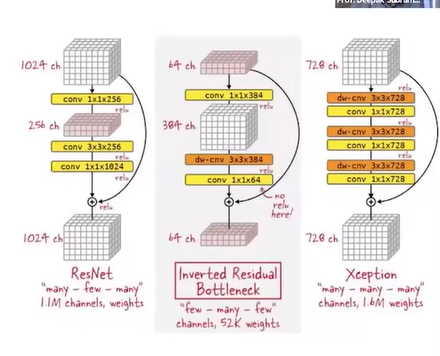 Prof. Deepak Subram...
1024 ch
conv 1x1x256
relu
256 ch
relu
conv 3x3x256
relu
conv 1x1x1024
relu
relu
1024 ch
ResNet
"many - few - many"
1.1M channels, weights
64 ch
conv 1x1x384
relu
384 ch
dw-cnv 3x3x384
relu
conv 1x1x64
no
relu
here!
64 ch
Inverted Residual
Bottleneck
"few - many - few"
channels, 52K weights
728 ch
relu
dw-cnv 3x3x728
conv 1x1x728
relu
dw-cnv 3x3x728
conv 1x1x728
relu
dw-cnv 3x3x728
conv 1x1x728
728 ch
Xception
"many - many - many"
channels, 1.6M weights